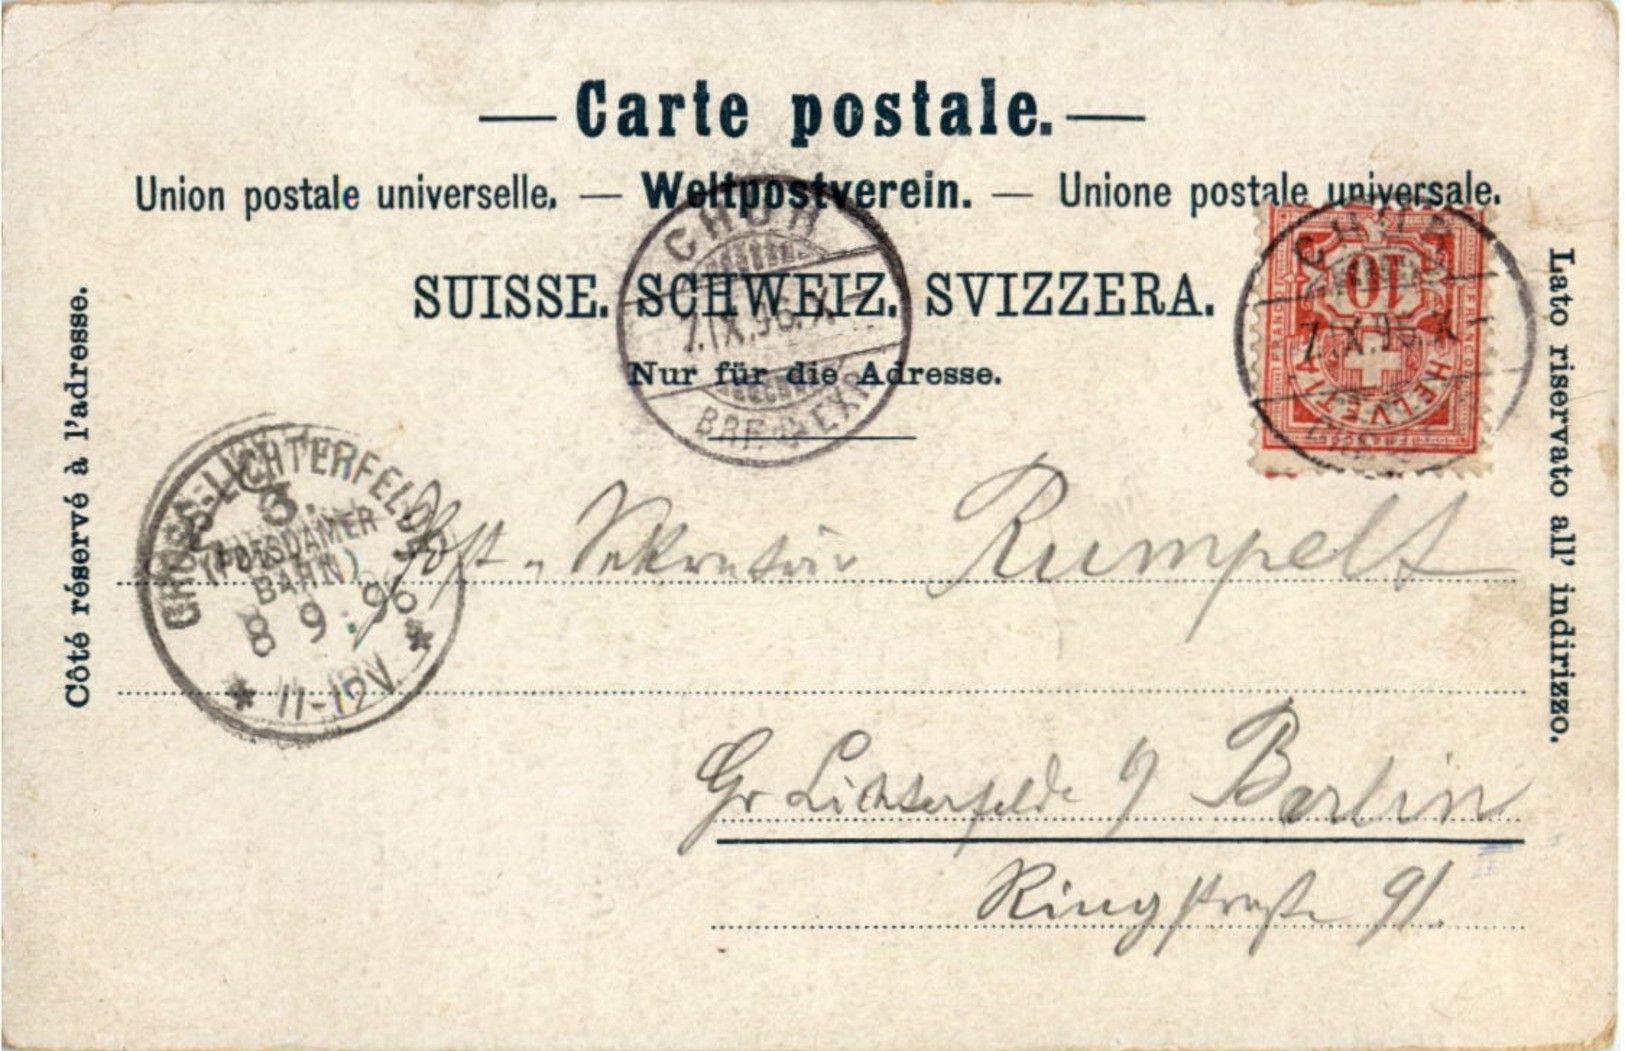 — Carte postale. —
Union postale universelle. — Weltpostverein. — Unione postale universale.
SUISSE. SCHWEIZ. SVIZZERA.
Nur für die Adresse.
Côté réservé à l'adresse.
Lato riservato all' indirizzo.
CHUR
7.IX.96.X-
BRF. EXP.
CHUR
7.IX.96.X-
FRANCO
10
FRANCO
HELVETIA
GROSS-LICHTERFELDE
3.
(POTSDAMER
BAHN)
8 9. 96
* 11-12V. *
Post-Sekretär Rumpelt
Gr Lichterfelde b/ Berlin
Ringstraße 91.